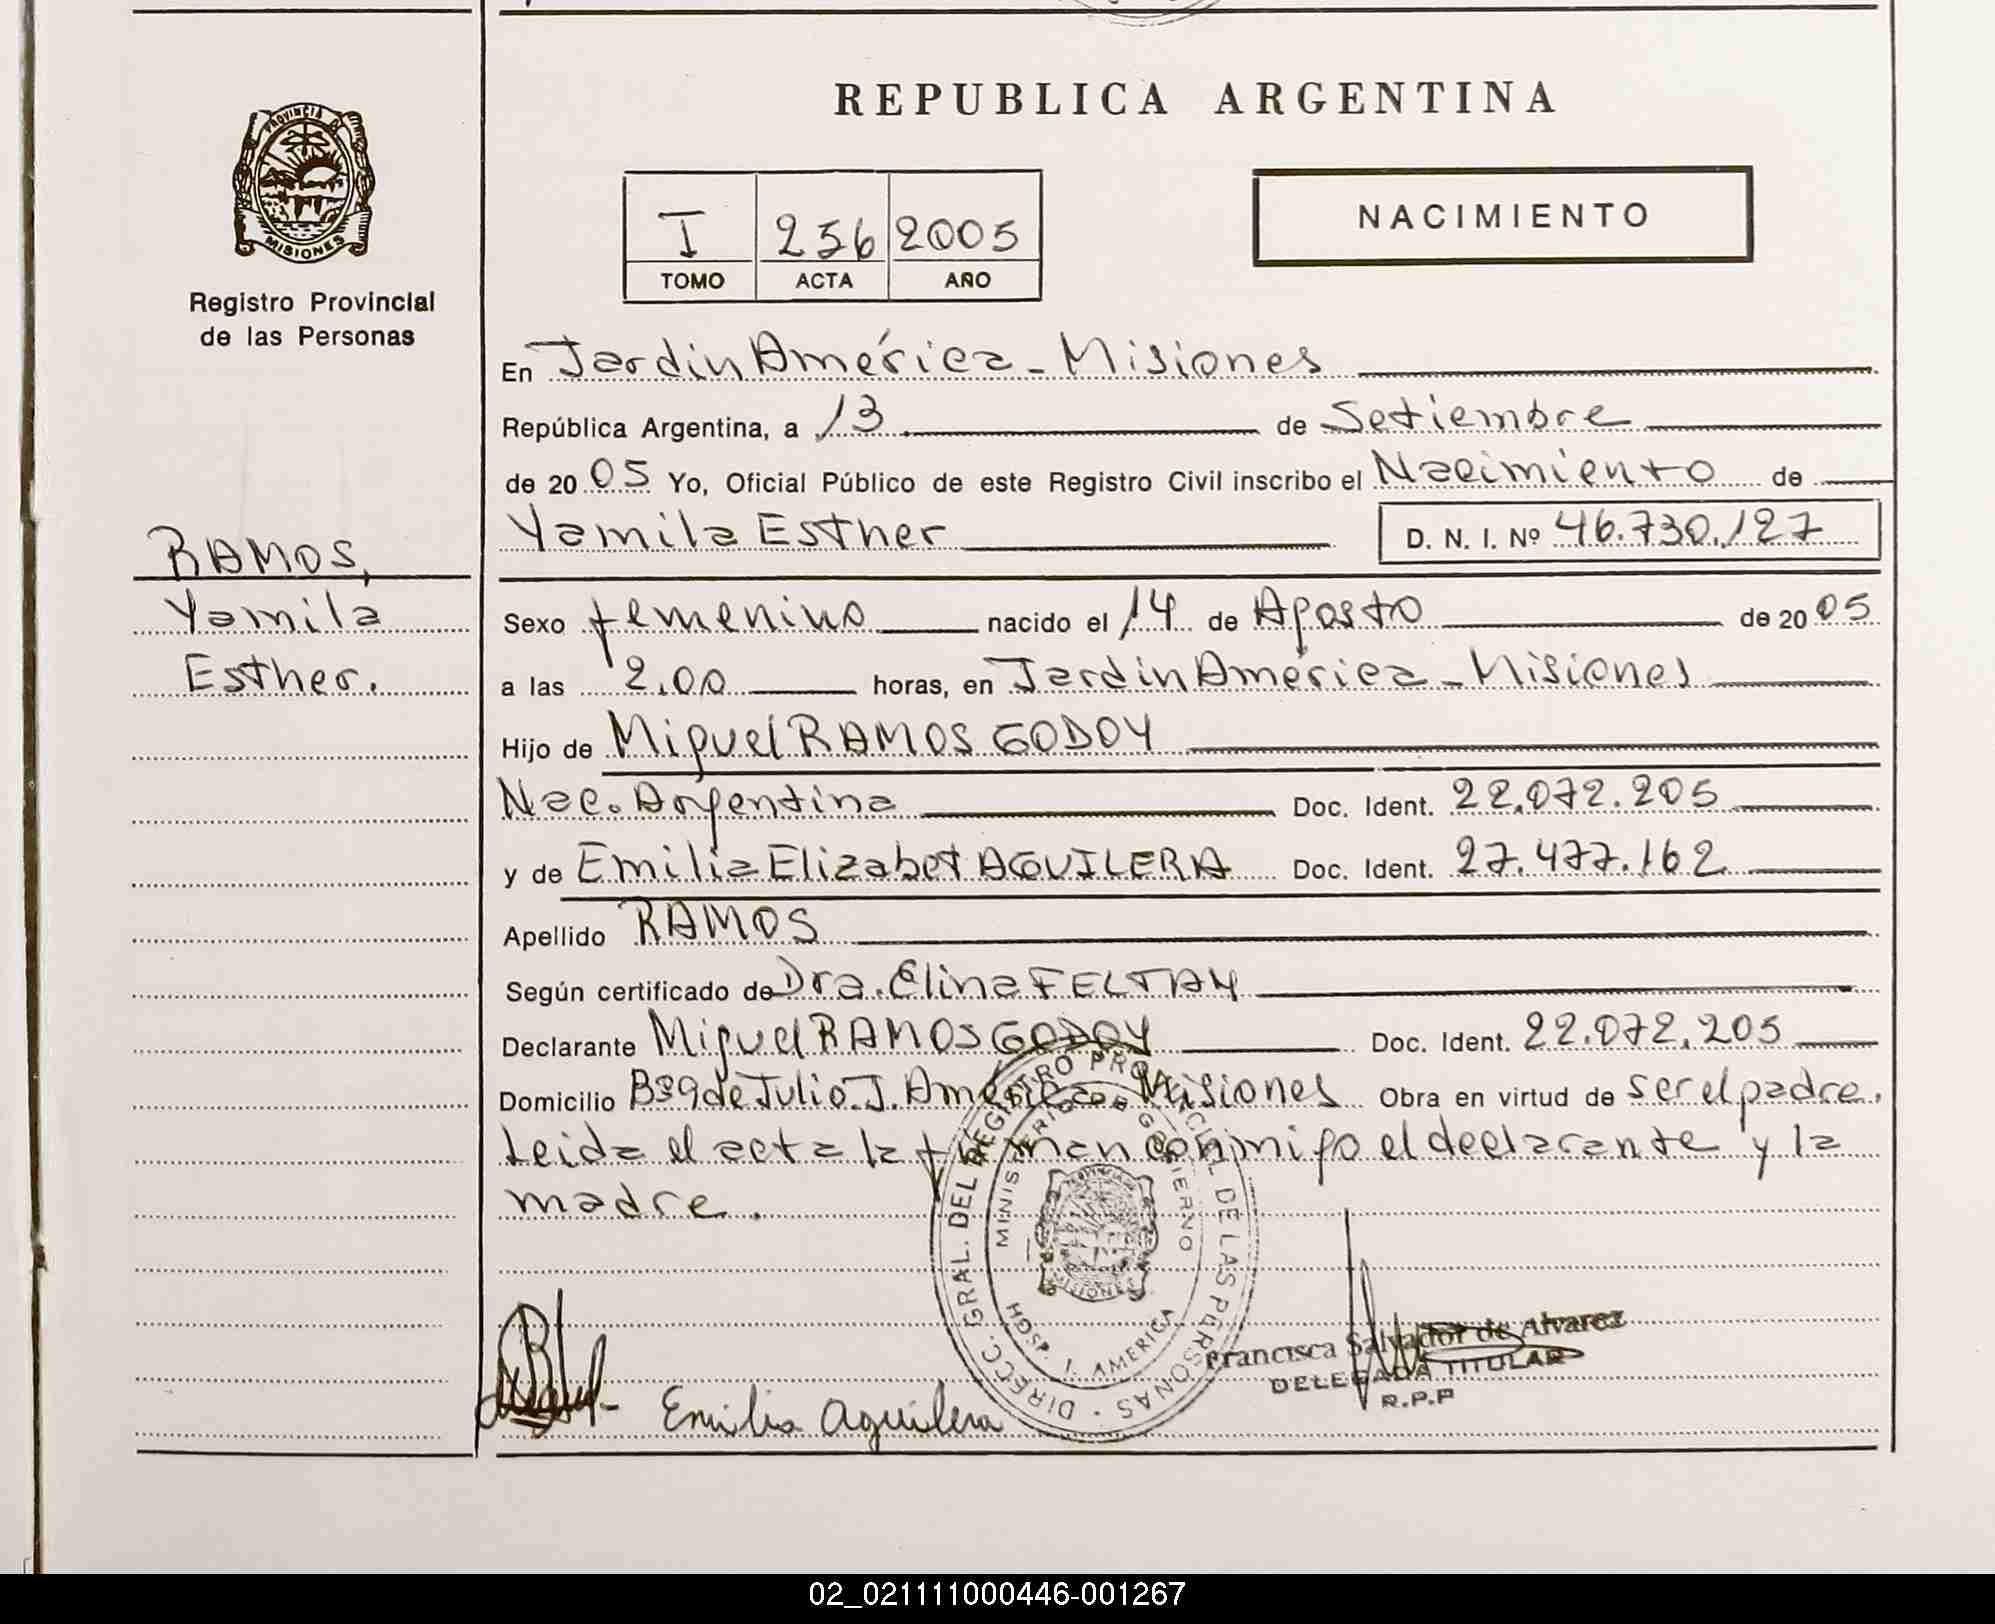 REPUBLICA ARGENTINA
PROVINCIA DE
MISIONES
Registro Provincial
de las Personas
I 256 2005
TOMO ACTA AÑO
NACIMIENTO
En Jardin América - Misiones
República Argentina, a 13 de Setiembre
de 20 05 Yo, Oficial Público de este Registro Civil inscribo el Nacimiento de
Yamila Esther D. N. I. Nº 46.730.127
RAMOS,
Yamila
Esther.
Sexo femenino nacido el 14 de Agosto de 20 05
a las 2.00 horas, en Jardin América - Misiones
Hijo de Miguel RAMOS GODOY
Nac. Argentina Doc. Ident. 22.072.205
y de Emilia Elizabet AGUILERA Doc. Ident. 27.477.162
Apellido RAMOS
Según certificado de Dra. Elina FELTAY
Declarante Miguel RAMOS GODOY Doc. Ident. 22.072.205
Domicilio Bº 9 de Julio. J. América Misiones Obra en virtud de ser el padre.
Leida el acta la firman conmigo el declarante y la
madre.
DIRECC. GRAL. DEL REGISTRO PROVINCIAL DE LAS PERSONAS
MINISTERIO DE GOBIERNO
MISIONES
HOSP. J. AMERICA
Emilia Aguilera
Francisca Salvador de Alvarez
DELEGADA TITULAR
R.P.P
02_021111000446-001267